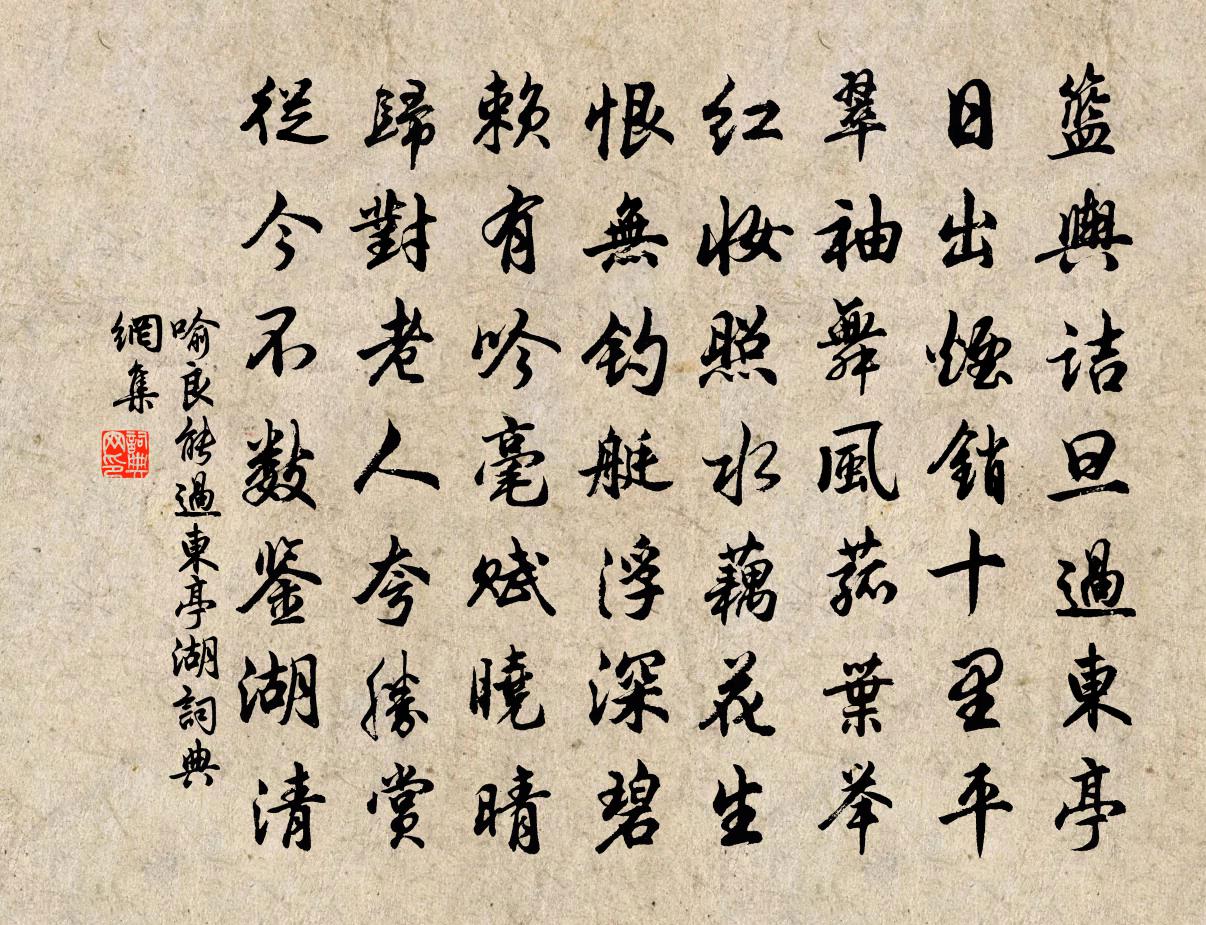 籃輿詰旦過東亭
日出煙銷十里平
翠袖舞風菰葉举
红妆照水藕花生
恨無钓艇浮深碧
赖有吟毫赋曉晴
歸對老人夸勝赏
從今不数鉴湖清
喻良能過東亭湖詞典
網集
詞典
网印